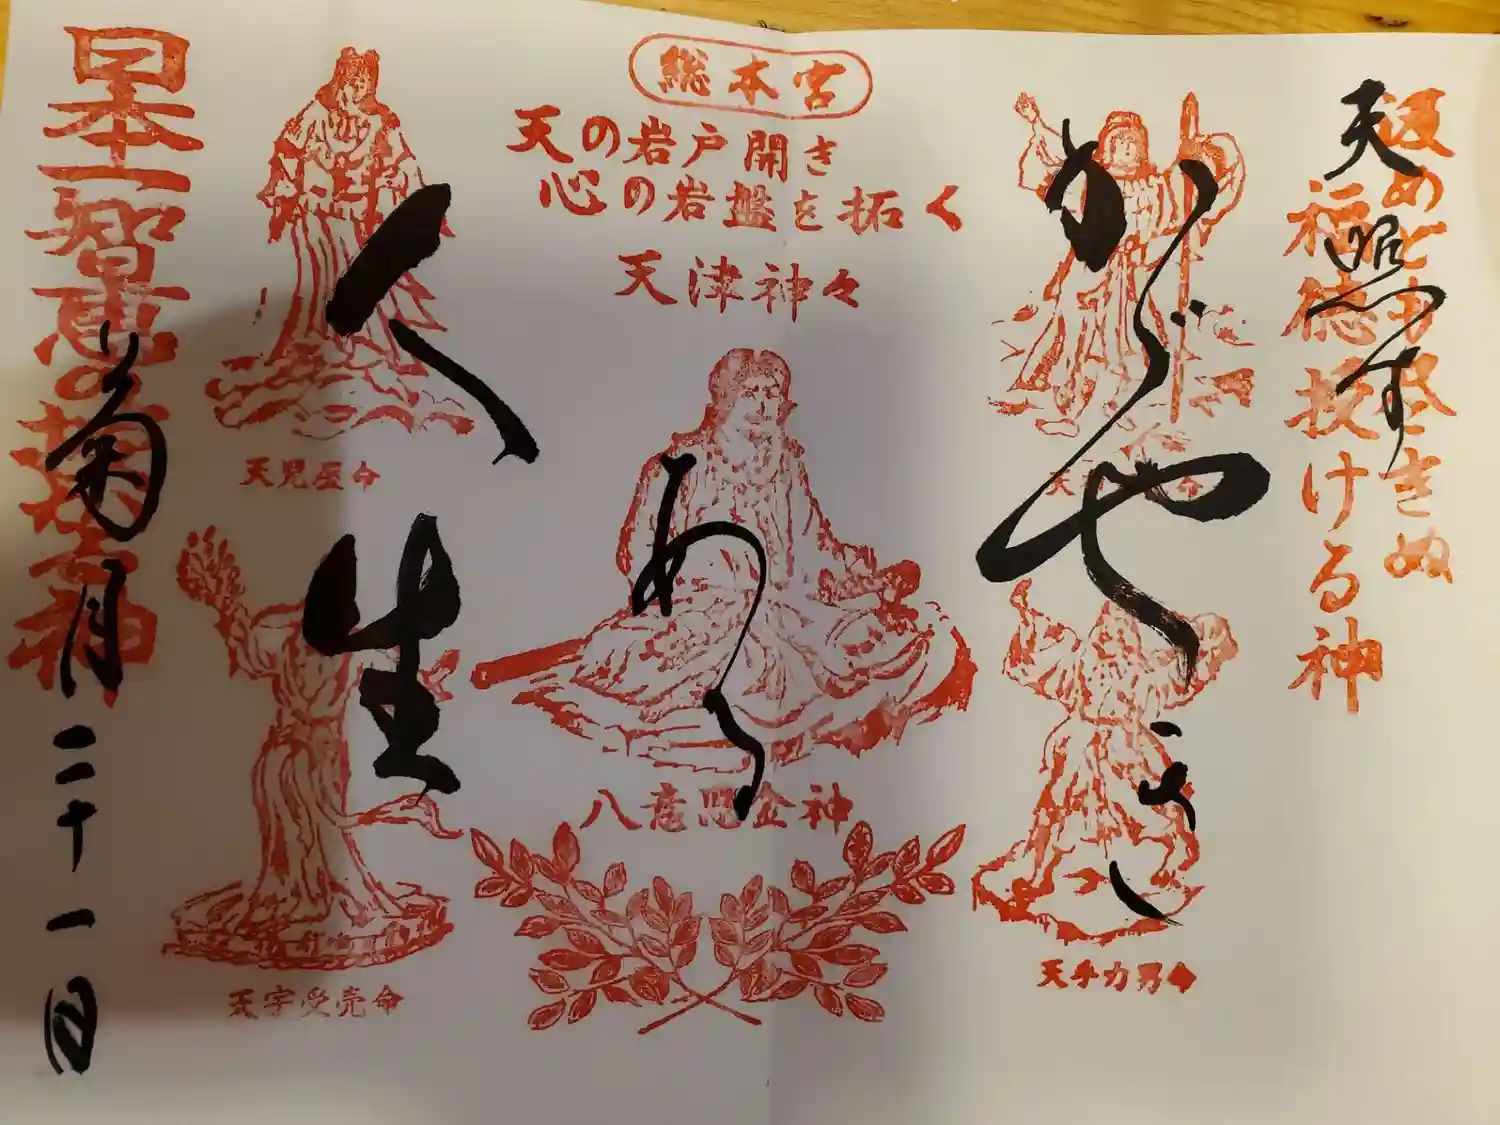 汲めども尽きぬ
福徳授ける神
天照す
総本宮
天の岩戸開き
心の岩盤を拓く
天津神々
かゞや
天手力男命
ある
八意思金神
人生
天児屋命
天宇受売命
日本一智恵の神
菊月二十一日